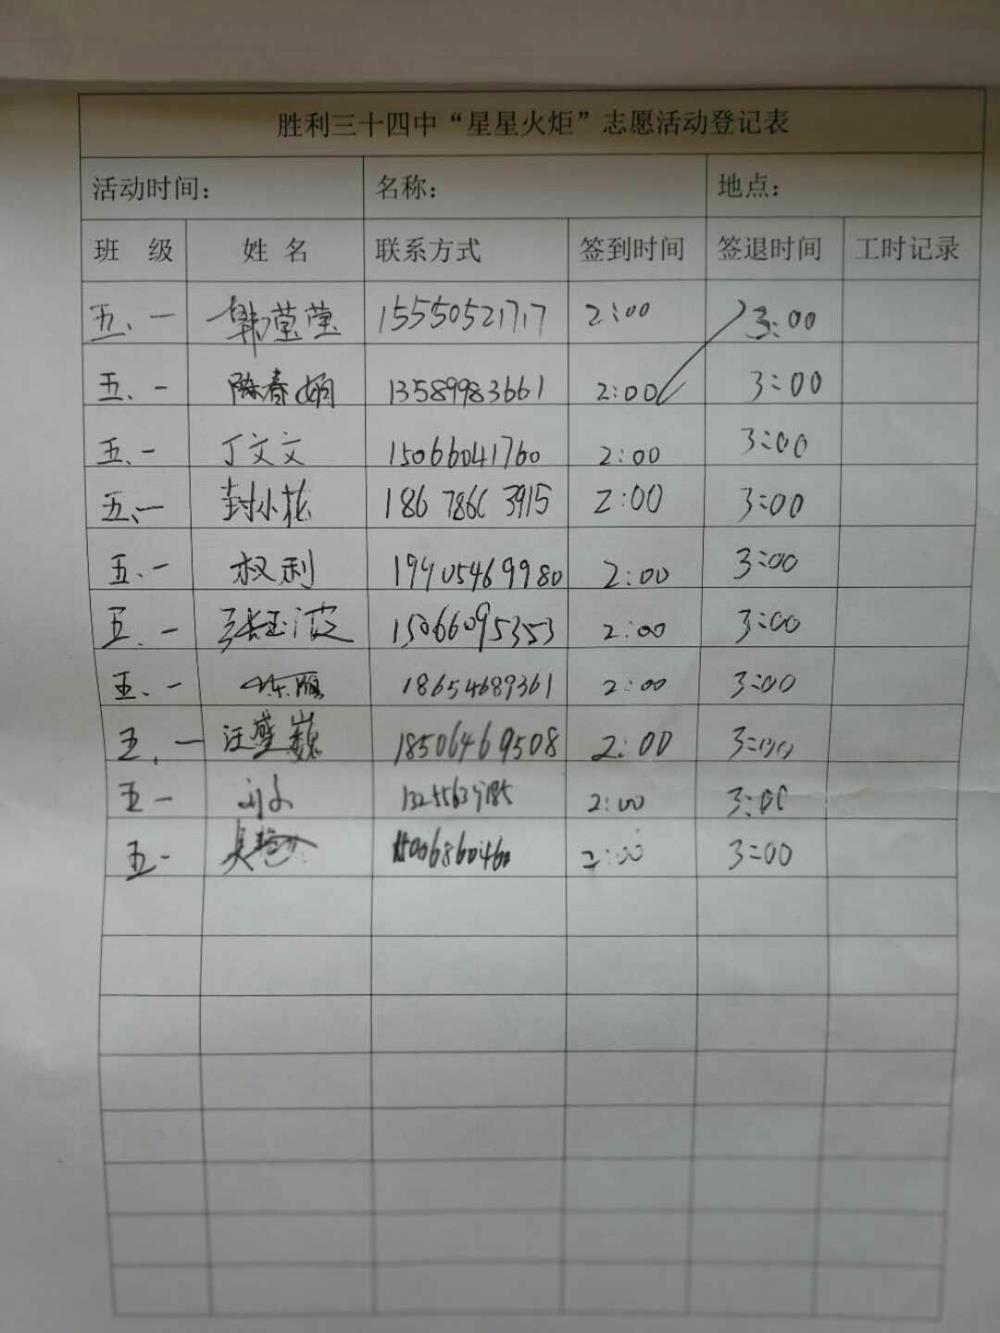 胜利三十四中“星星火炬”志愿活动登记表
活动时间： 名称： 地点：
班 级 姓 名 联系方式 签到时间 签退时间 工时记录
五、一 韩莹莹 15550521717 2:00 3:00
五、一 陈春娟 13589983661 2:00 3:00
五、一 丁文文 15066041760 2:00 3:00
五、一 封小花 2:00 3:00
五、一 权利 2:00 3:00
五、一 张玉波 15066095353 2:00 3:00
五、一 18654689361 2:00 3:00
五、一 汪盛巍 18506469508 2:00 3:00
五一 2:00 3:00
五一 2:00 3:00